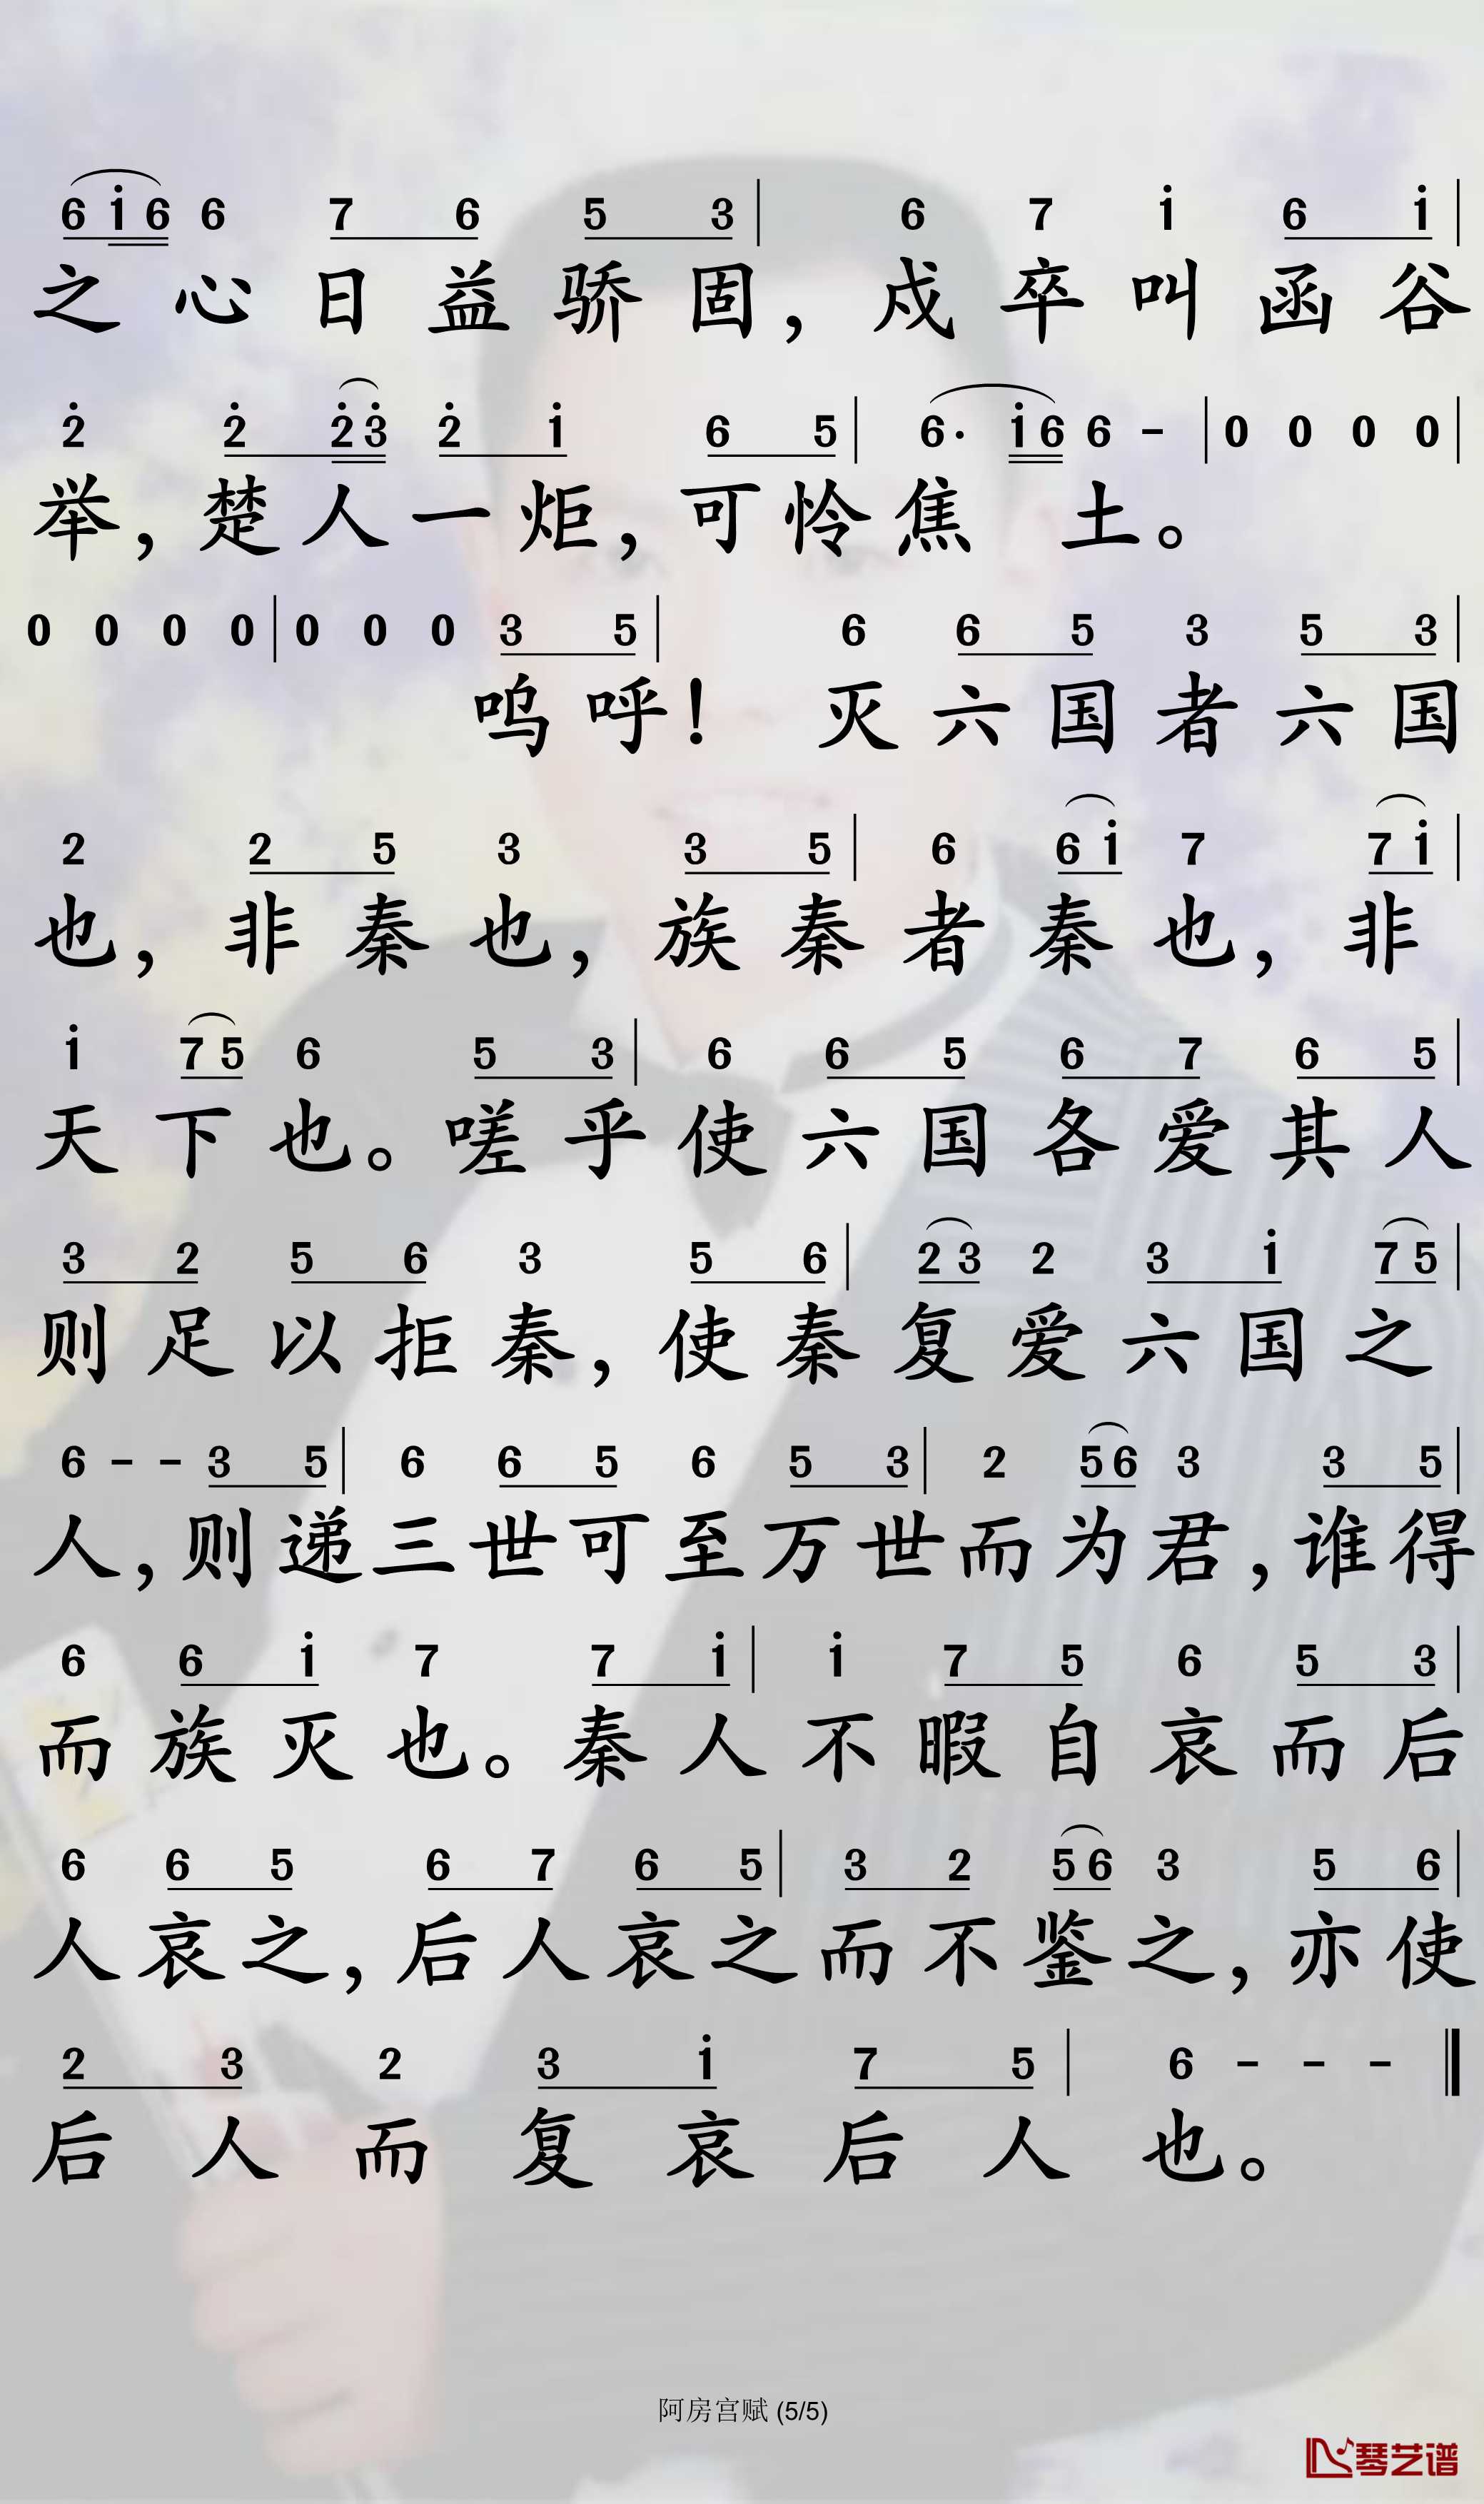 6 i 6 6 7 6 5 3 | 6 7 i 6 i |
之心日益骄固，戍卒叫函谷
2 2 2 3 2 i 6 5 | 6· i 6 6 - | 0 0 0 0 |
举，楚人一炬，可怜焦土。
0 0 0 0 | 0 0 0 3 5 | 6 6 5 3 5 3 |
呜呼！灭六国者六国
2 2 5 3 3 5 | 6 6 i 7 7 i |
也，非秦也，族秦者秦也，非
i 7 5 6 5 3 | 6 6 5 6 7 6 5 |
天下也。嗟乎使六国各爱其人
3 2 5 6 3 5 6 | 2 3 2 3 i 7 5 |
则足以拒秦，使秦复爱六国之
6 - - 3 5 | 6 6 5 6 5 3 | 2 5 6 3 3 5 |
人，则递三世可至万世而为君，谁得
6 6 i 7 7 i | i 7 5 6 5 3 |
而族灭也。秦人不暇自哀而后
6 6 5 6 7 6 5 | 3 2 5 6 3 5 6 |
人哀之，后人哀之而不鉴之，亦使
2 3 2 3 i 7 5 | 6 - - - ‖
后人而复哀后人也。
阿房宫赋 (5/5)
琴艺谱